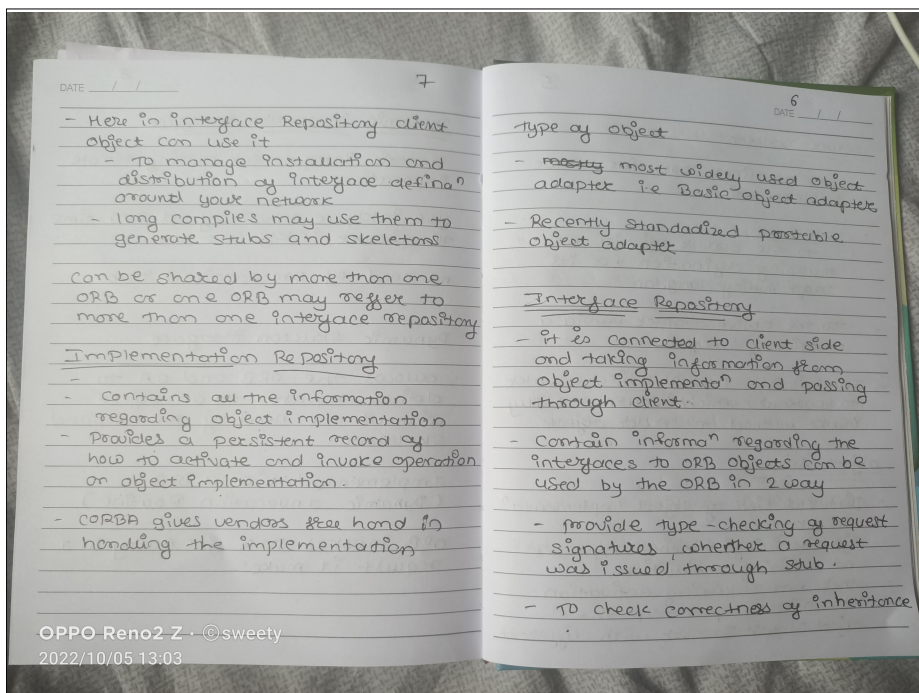 DATE / /
7
- Here in interface Repository client
object can use it
- To manage installation and
distribution of interface definaⁿ
around your network
- long compiles may use them to
generate stubs and skeletons
can be shared by more than one
ORB or one ORB may reffer to
more than one interface repository
Implementation Repository
-
- contains all the information
regarding object implementation
- Provides a persistent record of
how to activate and invoke operation
on object implementation.
- CORBA gives vendors free hand in
handling the implementation
6
DATE / /
type of object
- most widely used object
adapter i.e Basic object adapter
- Recently standadized portable
object adapter
Interface Repository
- it is connected to client side
and taking information from
object implementoⁿ and passing
through client.
- contain informaⁿ regarding the
interfaces to ORB objects can be
used by the ORB in 2 way
- provide type-checking of request
signatures, wherther a request
was issued through stub.
- To check correctness of inheritance
OPPO Reno2 Z · ©sweety
2022/10/05 13:03